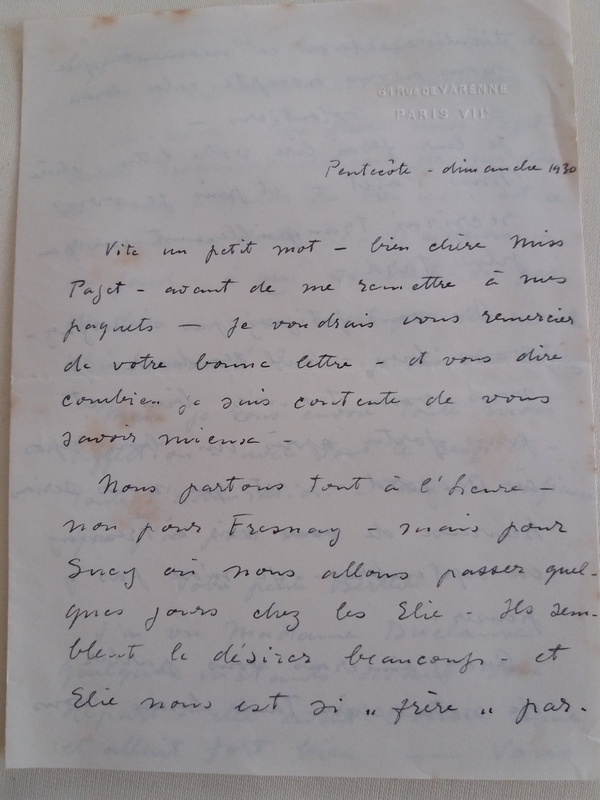 64 RUE DE VARENNE
PARIS VIIe
Pentecôte - dimanche 1930
Vite un petit mot - bien chère Miss
Paget - avant de me remettre à mes
paquets - Je voudrais vous remercier
de votre bonne lettre - et vous dire
combien je suis contente de vous
savoir mieux -
Nous partons tout à l'heure -
non pour Fresnay - mais pour
Sucy où nous allons passer quel-
ques jours chez les Elie - Ils sem-
blent le désirer beaucoup - et
Elie nous est si „ frère „ par-